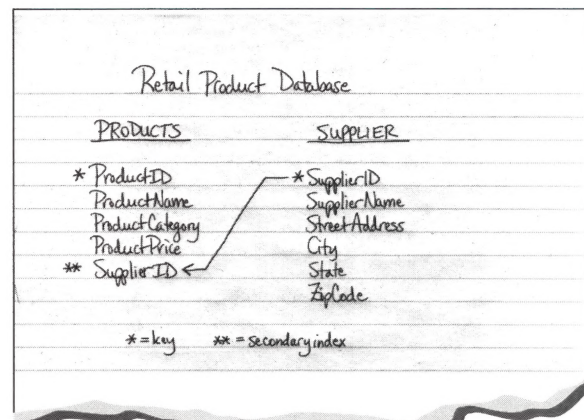 Retail Product Database
PRODUCTS
* ProductID
ProductName
ProductCategory
ProductPrice
** SupplierID
SUPPLIER
* SupplierID
SupplierName
StreetAddress
City
State
ZipCode
* = key ** = secondary index